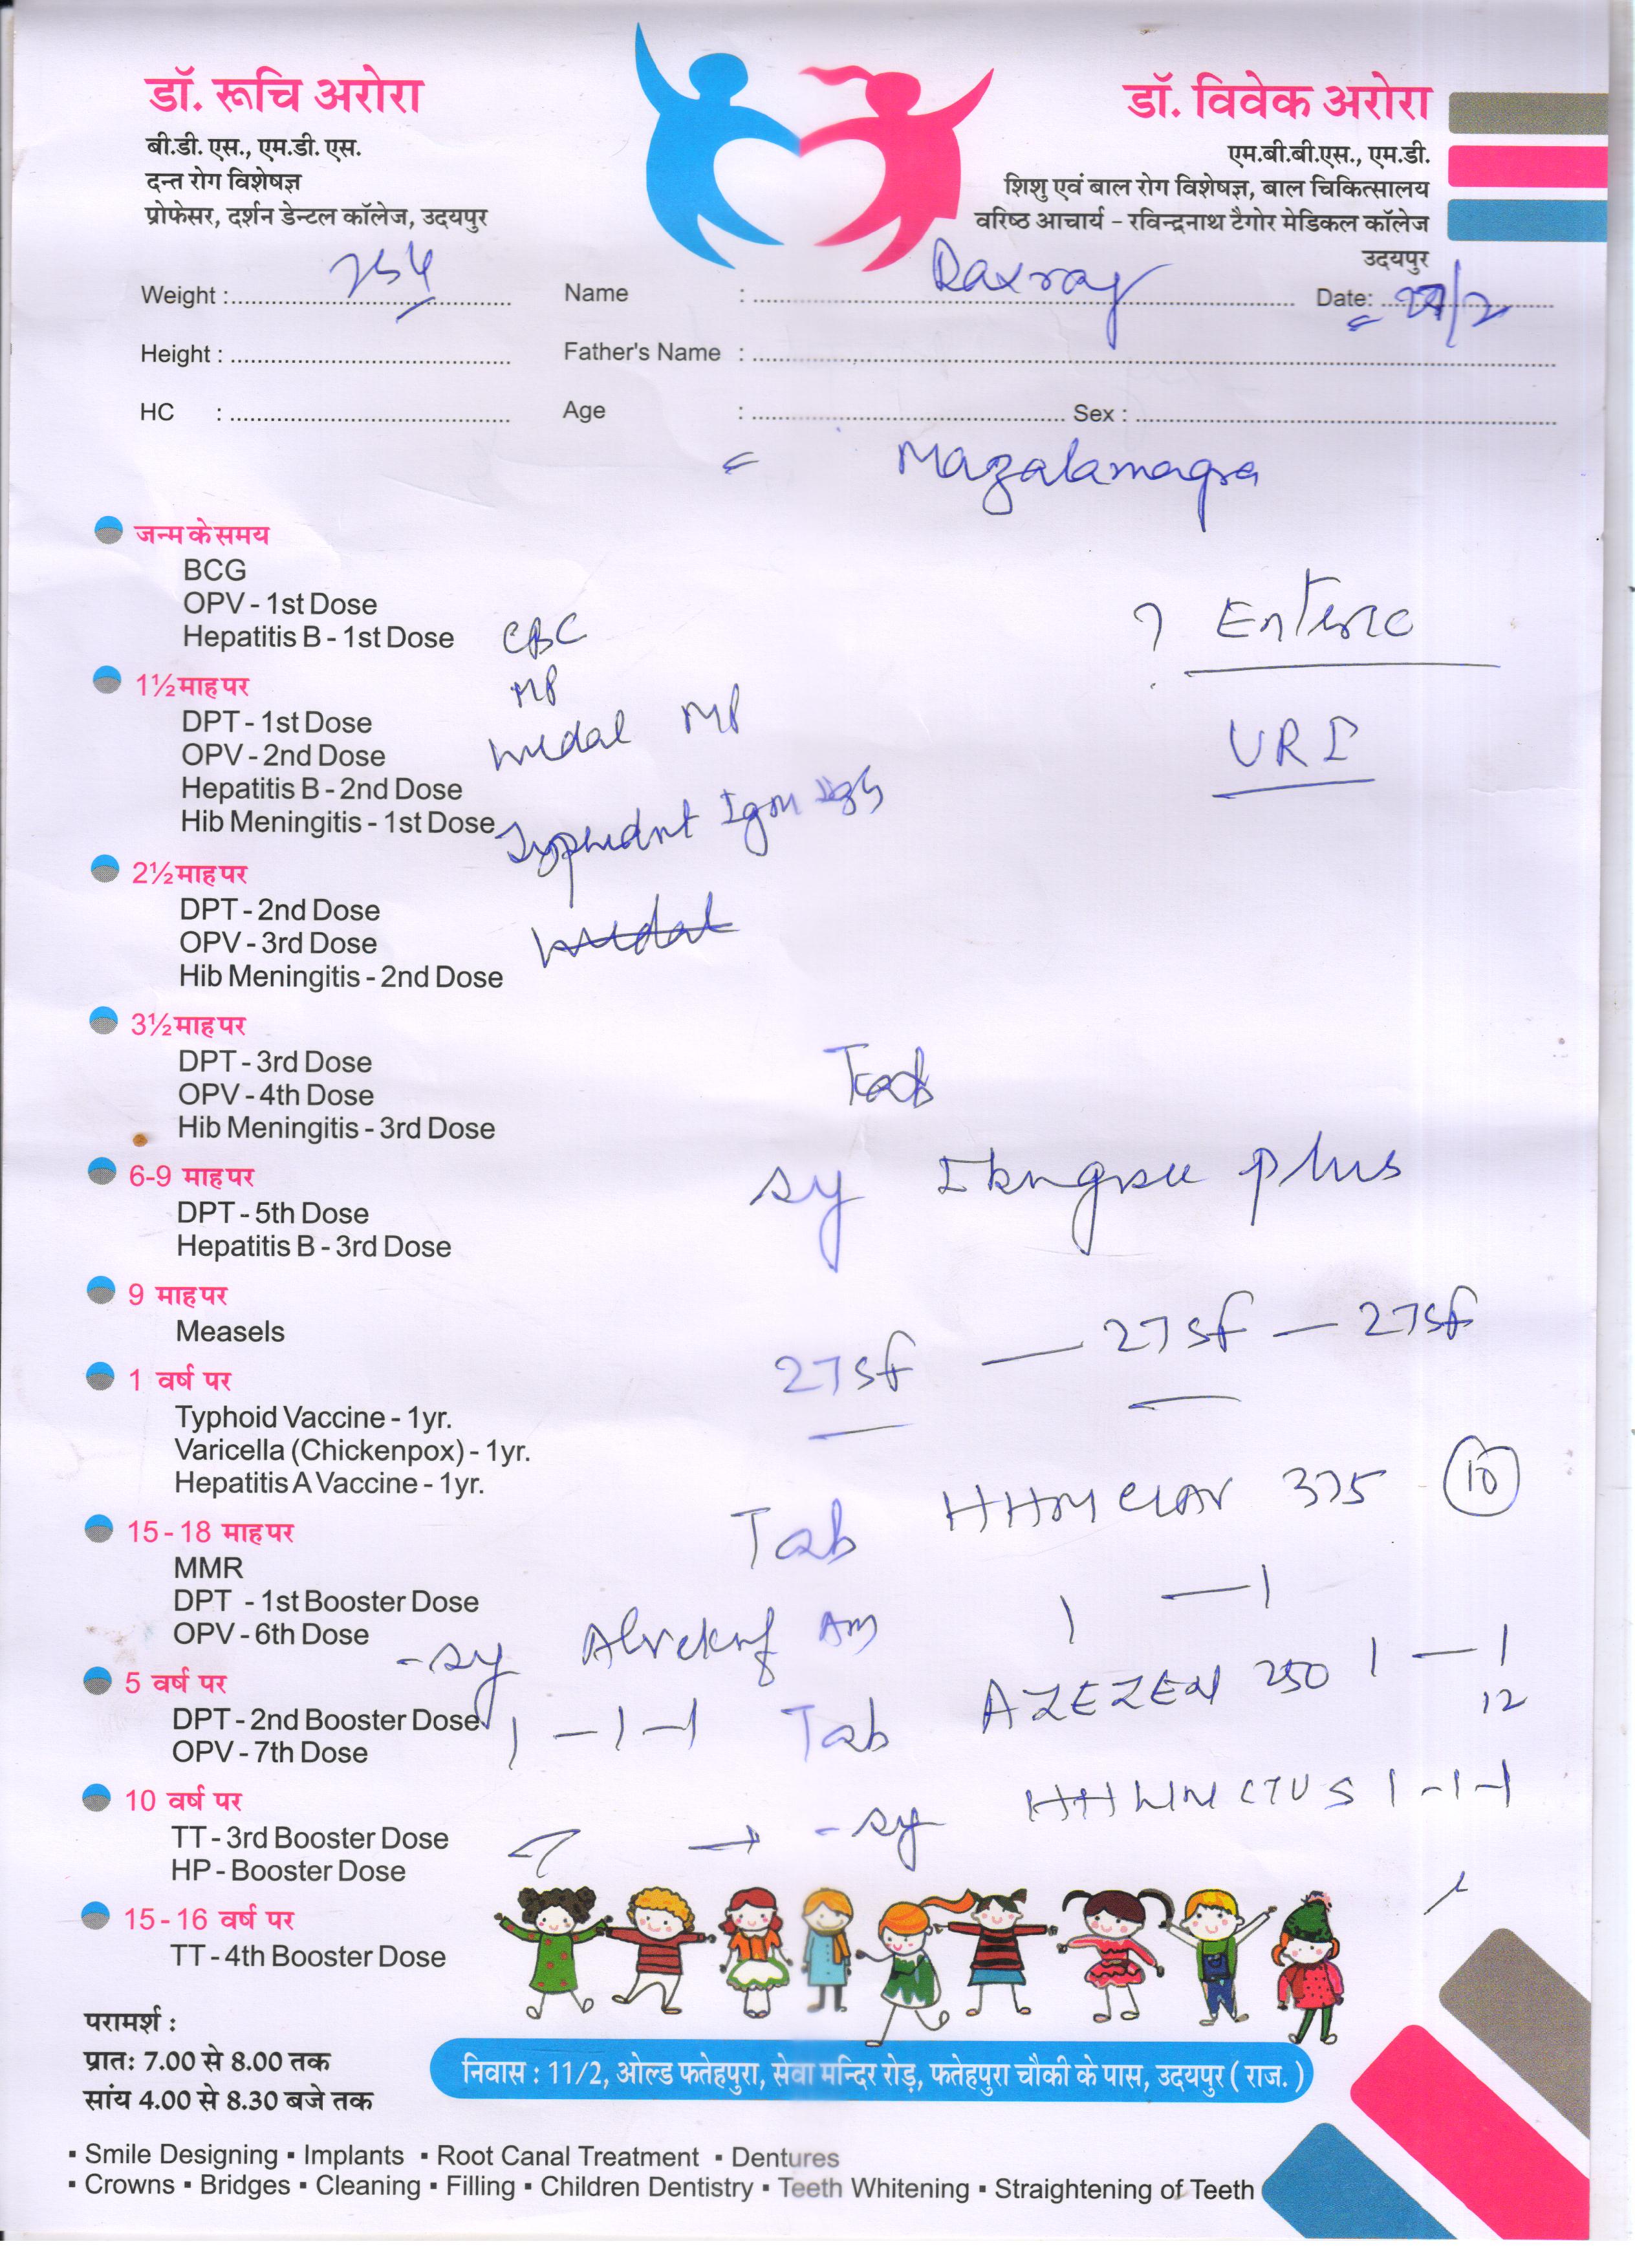 डॉ. रूचि अरोरा
बी.डी. एस., एम.डी. एस.
दन्त रोग विशेषज्ञ
प्रोफेसर, दर्शन डेन्टल कॉलेज, उदयपुर
डॉ. विवेक अरोरा
एम.बी.बी.एस., एम.डी.
शिशु एवं बाल रोग विशेषज्ञ, बाल चिकित्सालय
वरिष्ठ आचार्य - रविन्द्रनाथ टैगोर मेडिकल कॉलेज
उदयपुर
Weight : Name : Date:
Height : Father's Name :
HC : Age : Sex :
जन्म के समय
BCG
OPV - 1st Dose
Hepatitis B - 1st Dose CBC
? Enteric
1½ माह पर MP
DPT - 1st Dose
OPV - 2nd Dose widal MP
URI
Hepatitis B - 2nd Dose
Hib Meningitis - 1st Dose Typhidot IgM IgG
2½ माह पर
DPT - 2nd Dose
OPV - 3rd Dose
Hib Meningitis - 2nd Dose
3½ माह पर
DPT - 3rd Dose
OPV - 4th Dose
Hib Meningitis - 3rd Dose
6-9 माह पर
sy plus
DPT - 5th Dose
Hepatitis B - 3rd Dose
9 माह पर
Measels
1 वर्ष पर
Typhoid Vaccine - 1yr.
Varicella (Chickenpox) - 1yr.
Hepatitis A Vaccine - 1yr.
Tab HHMCLAV 375 10
15-18 माह पर
MMR
DPT - 1st Booster Dose
1 — 1
OPV - 6th Dose
sy AM
5 वर्ष पर
DPT - 2nd Booster Dose
1 - 1 - 1 Tab AZEZEN 250 1 — 1
12
OPV - 7th Dose
10 वर्ष पर
sy HHLINCTUS 1 - 1 - 1
TT - 3rd Booster Dose
HP - Booster Dose
15-16 वर्ष पर
TT - 4th Booster Dose
परामर्श :
प्रातः 7.00 से 8.00 तक
सांय 4.00 से 8.30 बजे तक
निवास : 11/2, ओल्ड फतेहपुरा, सेवा मन्दिर रोड़, फतेहपुरा चौकी के पास, उदयपुर ( राज. )
▪ Smile Designing ▪ Implants ▪ Root Canal Treatment ▪ Dentures
▪ Crowns ▪ Bridges ▪ Cleaning ▪ Filling ▪ Children Dentistry ▪ Teeth Whitening ▪ Straightening of Teeth